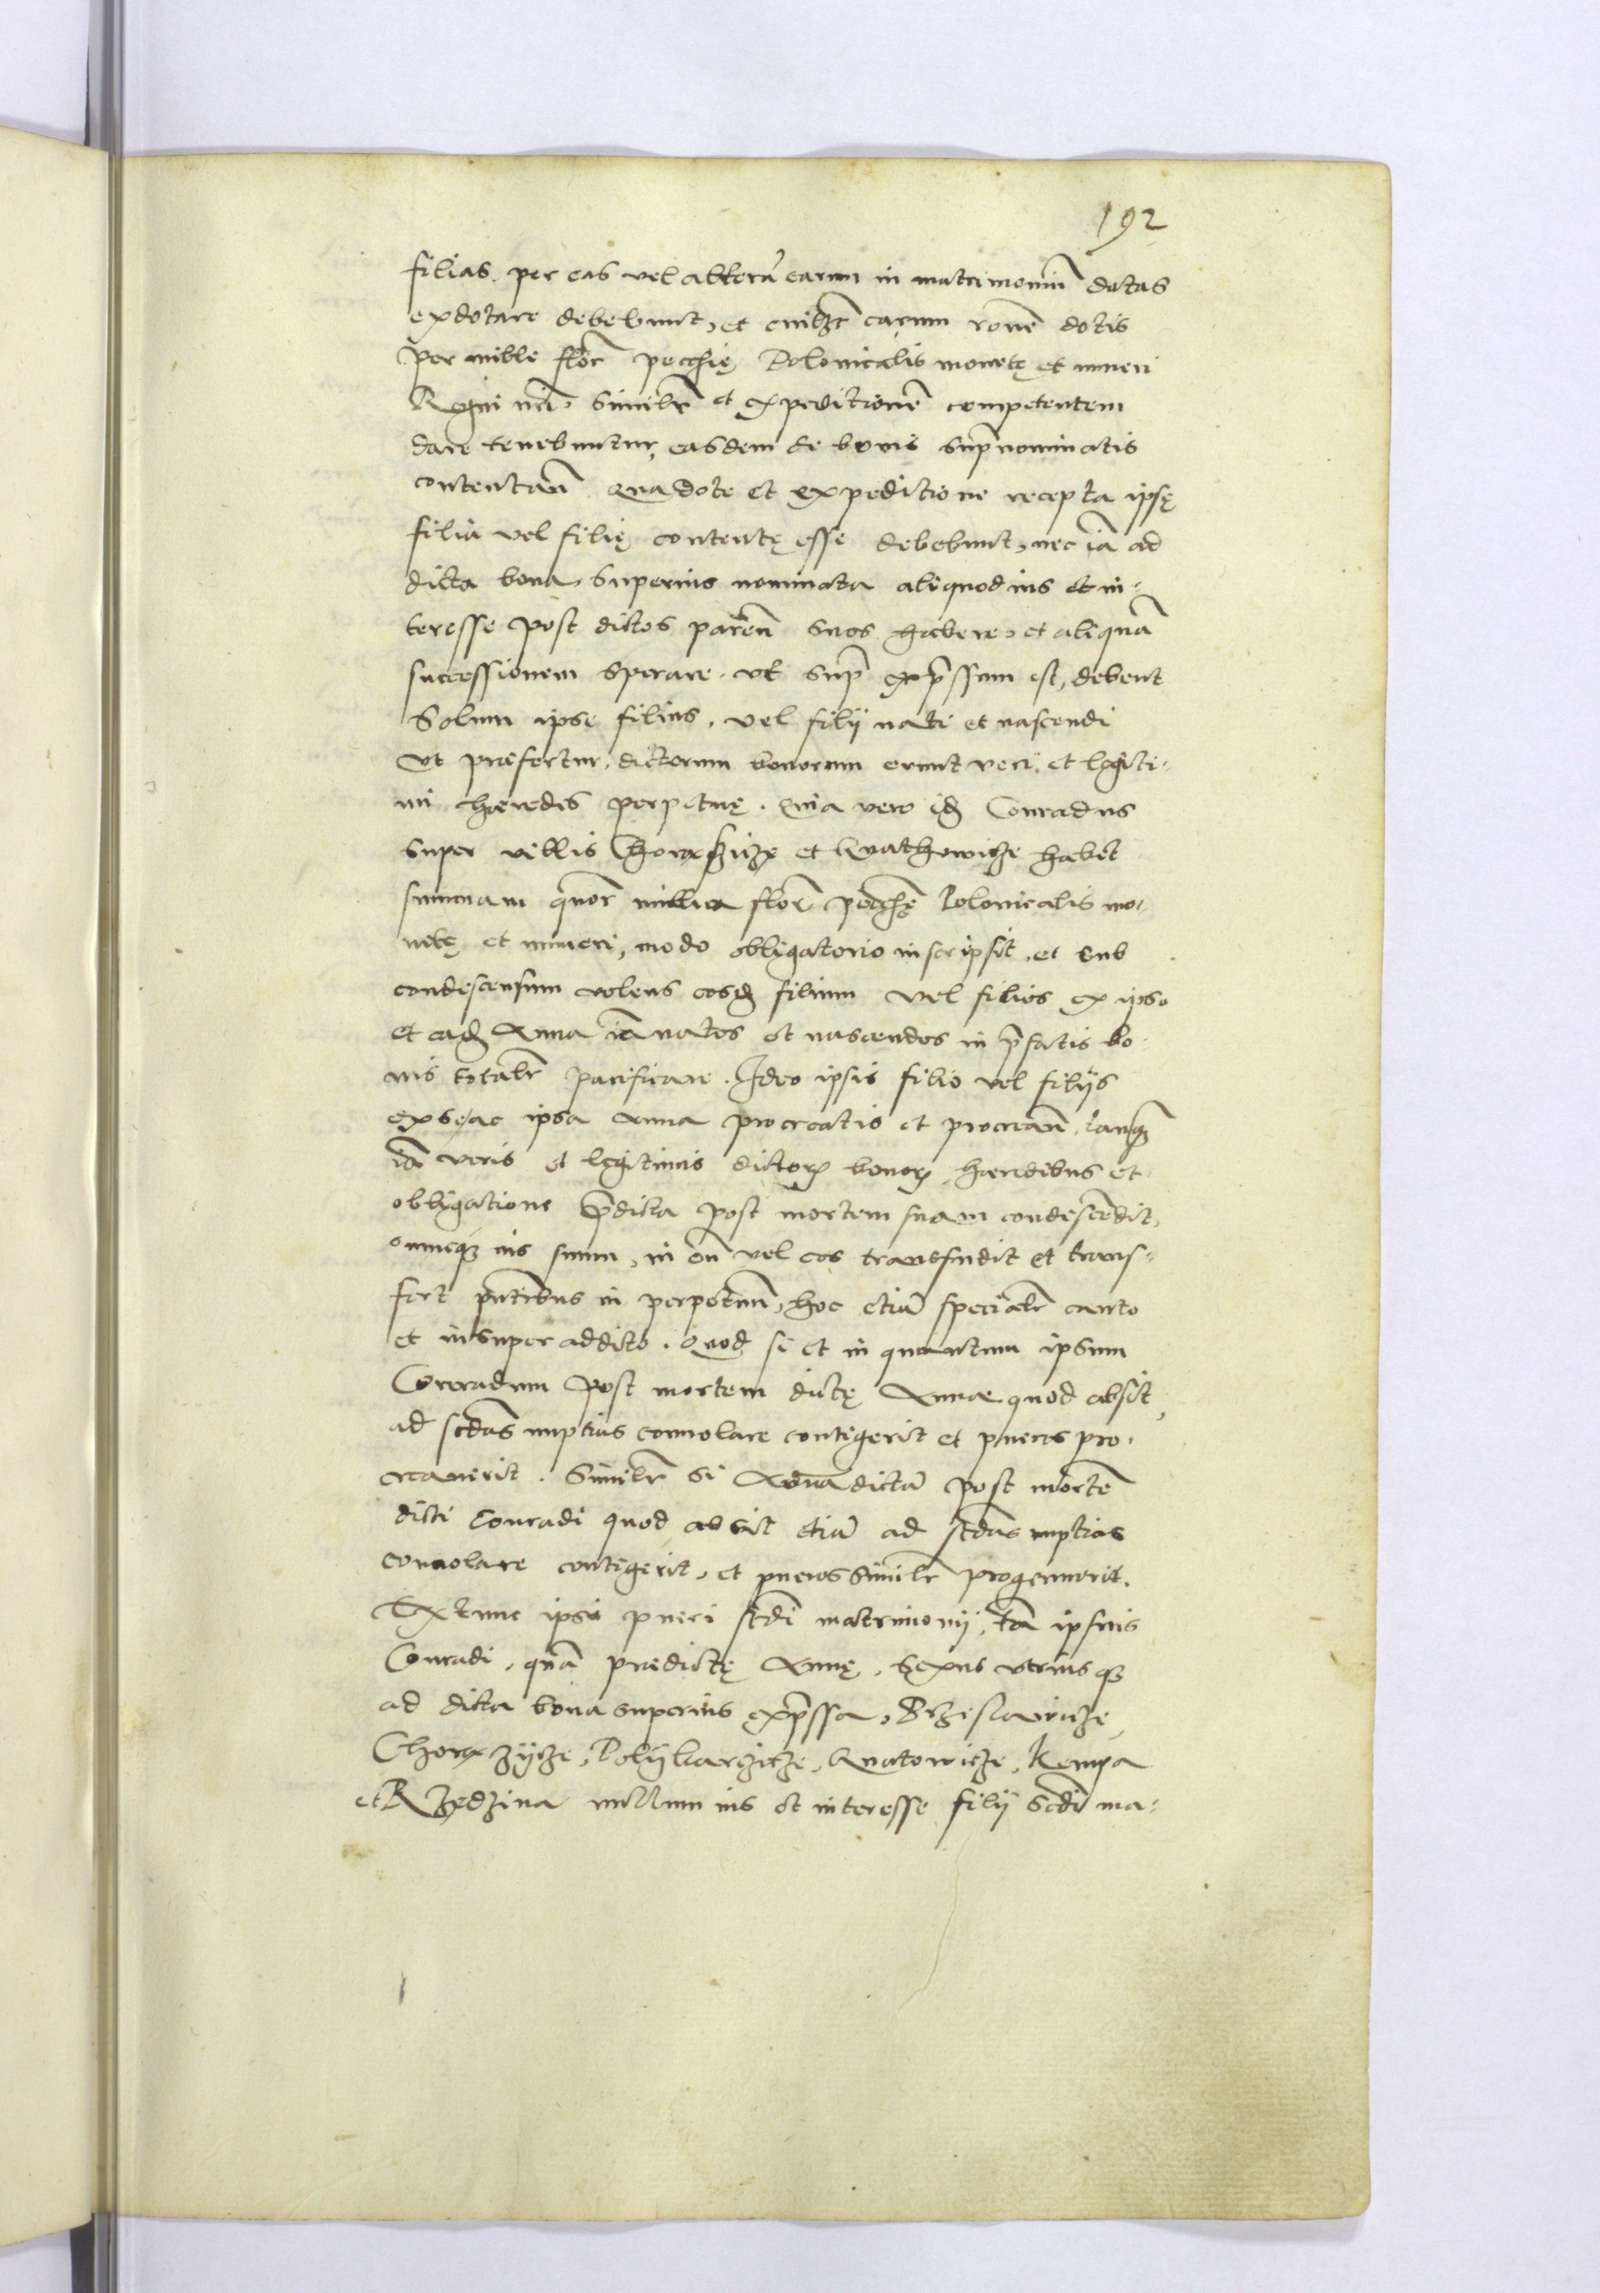 192
filias. per eas vel alterā earum in matrimoniū datas
exdotare debebunt, et cuilzt earum rone dotis
per mille flor pecchię Polonicalis monetę et numeri
Regni nri, Similr et expeditione competentem
dare tenebuntur, easdem de bonis supnominatis
contentañ. Qua dote et expeditione recepta ipsę
filia vel filię contentę esse debebunt, nec ia ad
dicta bona, superius nominata aliquod ius et in-
teresse post dictos pareñ suos habere, et aliquā
successionem sperare. ut sup expssum est, debent
Solum ipse filius, vel filij nati et nascendi
Ut praefertur, dictorum bonorum erunt veri et legiti-
mi haeredes perpetuę. Quia vero id Conradus
super villis Chorzęzicze et Quathowicze habet
summam quor millia flor pecchę Polonicalis mo-
netę et numeri, modo obligatorio inscripsit, et sub
condescensum volens eosd filium vel filios ex ipso
et ead Anna ia natos et nascendos in pfatis bo-
nis totalr pacificare. Ideo ipsis filio vel filijs
ex se ac ipsa Anna procreatis et procreañ, tanq
ia veris et legitimis dictor bonor haeredibus et
obligatione pdicta post mortem suam condescendit,
omneq ius suum, in eu vel eos transfundit et trans-
fert pntibus in perpetuū, hoc etiā specialr cauto
et insuper addito. Quod si et in quantum ipsum
Conradum post mortem dictę Annae quod absit,
ad scdas nuptias convolare contigerit et pueros pro-
creaverit. Similr si Annā dictā post mortē
dicti Conradi quod absit etiā ad scdas nuptias
convolare contigerit, et pueros similr progenuerit.
Extunc ipsi pueri scdi matrimonij, tā ipsius
Conradi, quā praedictę Annę, sexus utriusq
ad dicta bona superius expssa, Brzeslawicze,
Chorzyze, Poliikarczicze, Quatowicze, Kempa
et Rzędzina nullum ius et interesse filij scdi ma-